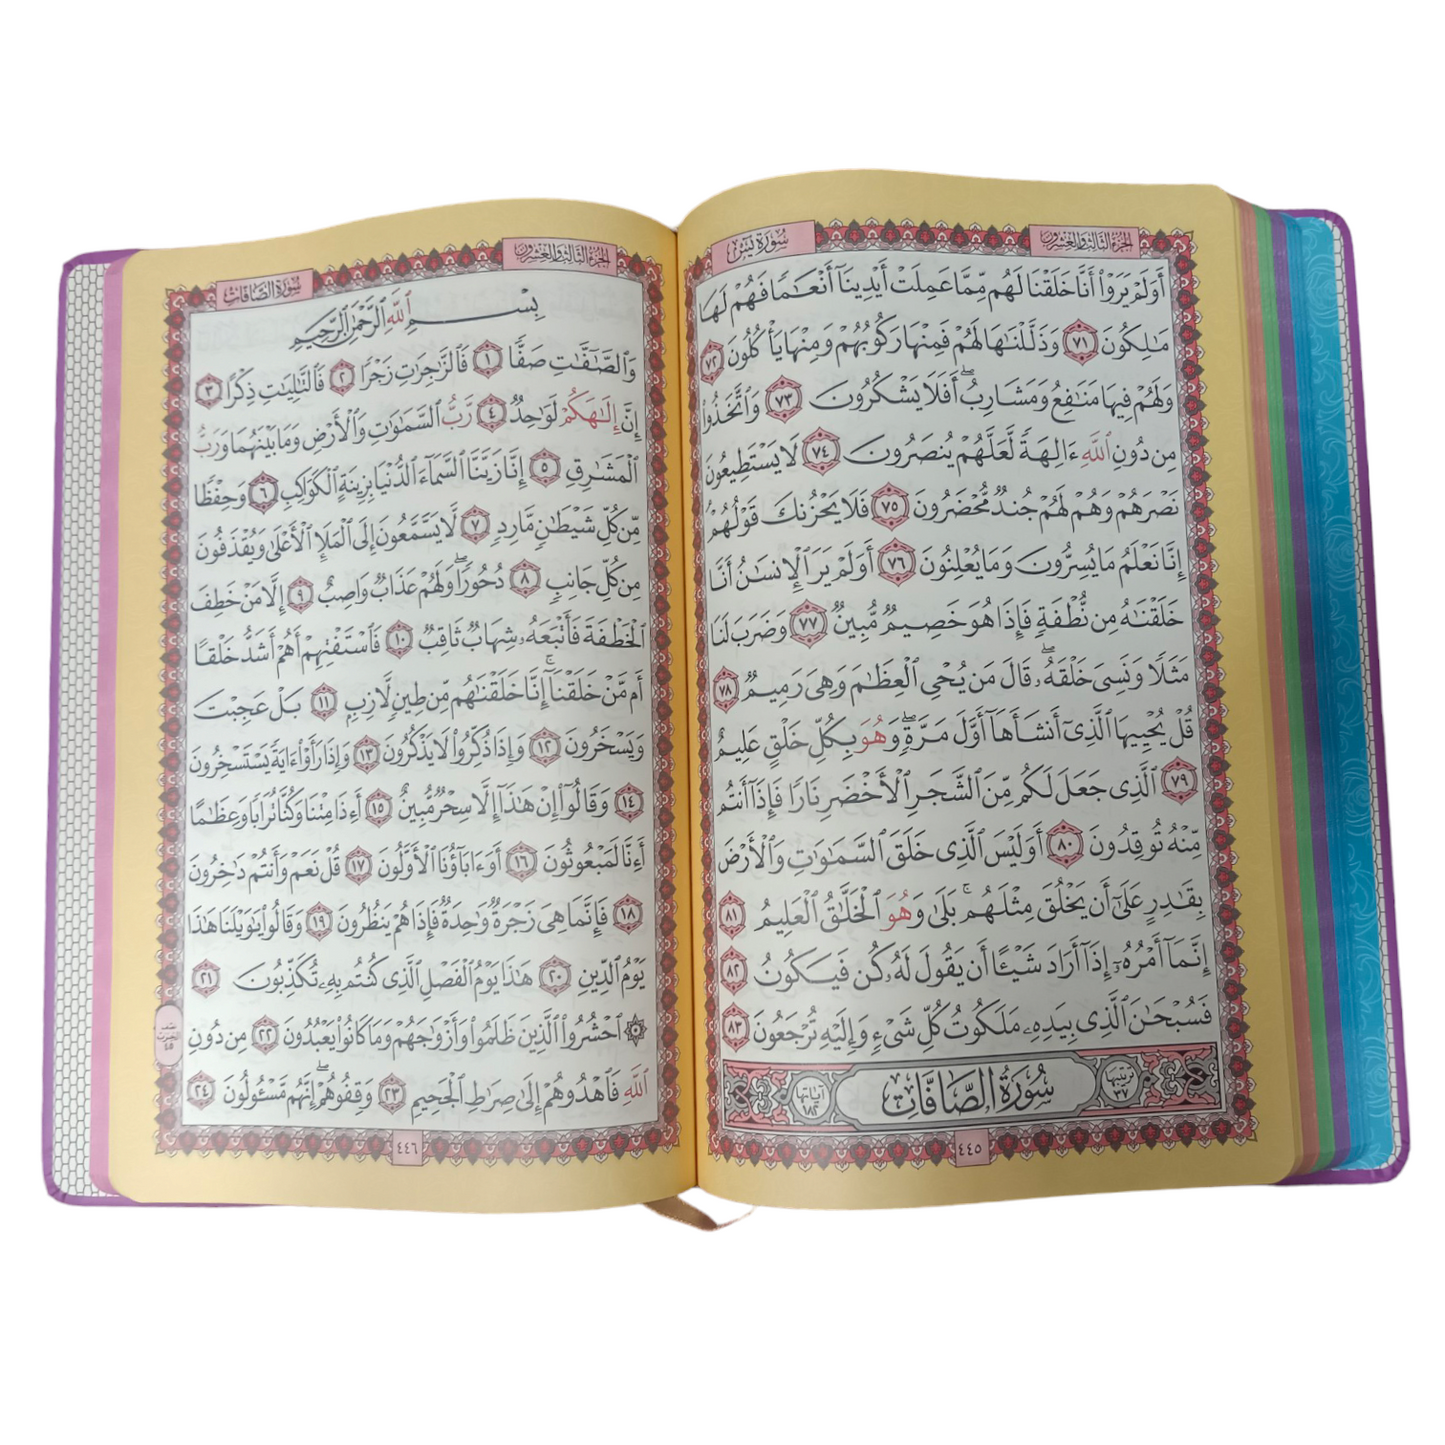 سُورَةُ يسٓ
الجُزءُ الثَّالِثُ وَالعِشْرُونَ
أَوَلَمْ يَرَوْا۟ أَنَّا خَلَقْنَا لَهُم مِّمَّا عَمِلَتْ أَيْدِينَآ أَنْعَـٰمًا فَهُمْ لَهَا
مَـٰلِكُونَ ٧١ وَذَلَّلْنَـٰهَا لَهُمْ فَمِنْهَا رَكُوبُهُمْ وَمِنْهَا يَأْكُلُونَ ٧٢
وَلَهُمْ فِيهَا مَنَـٰفِعُ وَمَشَارِبُ ۖ أَفَلَا يَشْكُرُونَ ٧٣ وَٱتَّخَذُوا۟
مِن دُونِ ٱللَّهِ ءَالِهَةً لَّعَلَّهُمْ يُنصَرُونَ ٧٤ لَا يَسْتَطِيعُونَ
نَصْرَهُمْ وَهُمْ لَهُمْ جُندٌ مُّحْضَرُونَ ٧٥ فَلَا يَحْزُنكَ قَوْلُهُمْ ۘ
إِنَّا نَعْلَمُ مَا يُسِرُّونَ وَمَا يُعْلِنُونَ ٧٦ أَوَلَمْ يَرَ ٱلْإِنسَـٰنُ أَنَّا
خَلَقْنَـٰهُ مِن نُّطْفَةٍ فَإِذَا هُوَ خَصِيمٌ مُّبِينٌ ٧٧ وَضَرَبَ لَنَا
مَثَلًا وَنَسِىَ خَلْقَهُۥ ۖ قَالَ مَن يُحْىِ ٱلْعِظَـٰمَ وَهِىَ رَمِيمٌ ٧٨
قُلْ يُحْيِيهَا ٱلَّذِىٓ أَنشَأَهَآ أَوَّلَ مَرَّةٍ ۖ وَهُوَ بِكُلِّ خَلْقٍ عَلِيمٌ
٧٩ ٱلَّذِى جَعَلَ لَكُم مِّنَ ٱلشَّجَرِ ٱلْأَخْضَرِ نَارًا فَإِذَآ أَنتُم
مِّنْهُ تُوقِدُونَ ٨٠ أَوَلَيْسَ ٱلَّذِى خَلَقَ ٱلسَّمَـٰوَٰتِ وَٱلْأَرْضَ
بِقَـٰدِرٍ عَلَىٰٓ أَن يَخْلُقَ مِثْلَهُم ۚ بَلَىٰ وَهُوَ ٱلْخَلَّـٰقُ ٱلْعَلِيمُ ٨١
إِنَّمَآ أَمْرُهُۥٓ إِذَآ أَرَادَ شَيْـًٔا أَن يَقُولَ لَهُۥ كُن فَيَكُونُ ٨٢
فَسُبْحَـٰنَ ٱلَّذِى بِيَدِهِۦ مَلَكُوتُ كُلِّ شَىْءٍ وَإِلَيْهِ تُرْجَعُونَ ٨٣
ترتيبها ٣٧ سُورَةُ الصَّافَّاتِ آياتها ١٨٢
٤٤٥
الجُزءُ الثَّالِثُ وَالعِشْرُونَ
سُورَةُ الصَّافَّاتِ
بِسْمِ ٱللَّهِ ٱلرَّحْمَـٰنِ ٱلرَّحِيمِ
وَٱلصَّـٰٓفَّـٰتِ صَفًّا ١ فَٱلزَّٰجِرَٰتِ زَجْرًا ٢ فَٱلتَّـٰلِيَـٰتِ ذِكْرًا ٣
إِنَّ إِلَـٰهَكُمْ لَوَٰحِدٌ ٤ رَّبُّ ٱلسَّمَـٰوَٰتِ وَٱلْأَرْضِ وَمَا بَيْنَهُمَا وَرَبُّ
ٱلْمَشَـٰرِقِ ٥ إِنَّا زَيَّنَّا ٱلسَّمَآءَ ٱلدُّنْيَا بِزِينَةٍ ٱلْكَوَاكِبِ ٦ وَحِفْظًا
مِّن كُلِّ شَيْطَـٰنٍ مَّارِدٍ ٧ لَّا يَسَّمَّعُونَ إِلَى ٱلْمَلَإِ ٱلْأَعْلَىٰ وَيُقْذَفُونَ
مِن كُلِّ جَانِبٍ ٨ دُحُورًا ۖ وَلَهُمْ عَذَابٌ وَاصِبٌ ٩ إِلَّا مَنْ خَطِفَ
ٱلْخَطْفَةَ فَأَتْبَعَهُۥ شِهَابٌ ثَاقِبٌ ١٠ فَٱسْتَفْتِهِمْ أَهُمْ أَشَدُّ خَلْقًا
أَم مَّنْ خَلَقْنَآ ۚ إِنَّا خَلَقْنَـٰهُم مِّن طِينٍ لَّازِبٍ ١١ بَلْ عَجِبْتَ
وَيَسْخَرُونَ ١٢ وَإِذَا ذُكِّرُوا۟ لَا يَذْكُرُونَ ١٣ وَإِذَا رَأَوْا۟ ءَايَةً يَسْتَسْخِرُونَ
١٤ وَقَالُوٓا۟ إِنْ هَـٰذَآ إِلَّا سِحْرٌ مُّبِينٌ ١٥ أَءِذَا مِتْنَا وَكُنَّا تُرَابًا وَعِظَـٰمًا
أَءِنَّا لَمَبْعُوثُونَ ١٦ أَوَءَابَآؤُنَا ٱلْأَوَّلُونَ ١٧ قُلْ نَعَمْ وَأَنتُمْ دَٰخِرُونَ
١٨ فَإِنَّمَا هِىَ زَجْرَةٌ وَٰحِدَةٌ فَإِذَا هُمْ يَنظُرُونَ ١٩ وَقَالُوا۟ يَـٰوَيْلَنَا هَـٰذَا
يَوْمُ ٱلدِّينِ ٢٠ هَـٰذَا يَوْمُ ٱلْفَصْلِ ٱلَّذِى كُنتُم بِهِۦ تُكَذِّبُونَ ٢١
۞ ٱحْشُرُوا۟ ٱلَّذِينَ ظَلَمُوا۟ وَأَزْوَٰجَهُمْ وَمَا كَانُوا۟ يَعْبُدُونَ ٢٢ مِن دُونِ
ٱللَّهِ فَٱهْدُوهُمْ إِلَىٰ صِرَٰطِ ٱلْجَحِيمِ ٢٣ وَقِفُوهُمْ ۖ إِنَّهُم مَّسْـُٔولُونَ ٢٤
نصف
الحزب
٤٥
٤٤٦